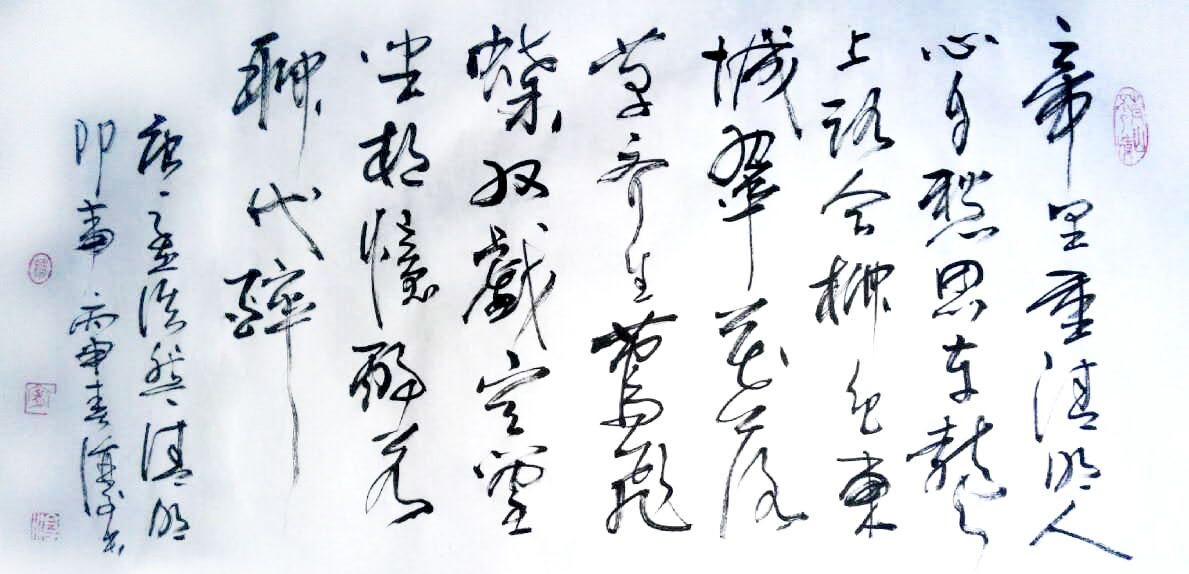 帝里重清明人
心自愁思车聲
上路合柳色東
城翠花落
草齐生鶯飛
蝶双戲空堂
坐相憶酌茗
聊代醉
唐孟浩然清明
即事丙申春漢书